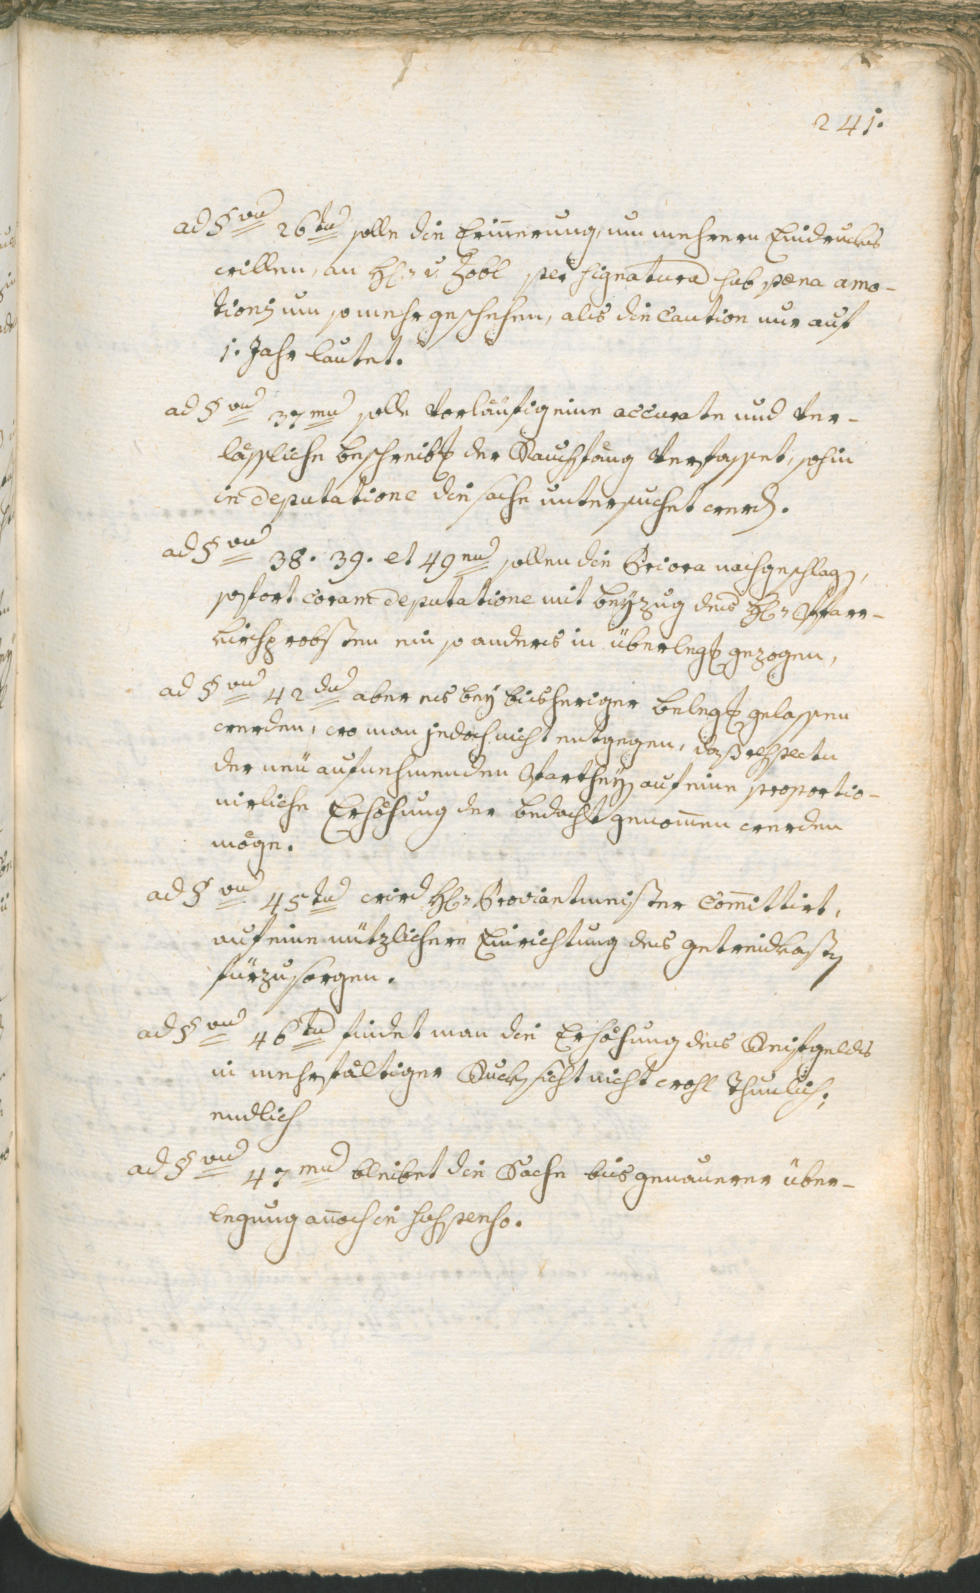 241.
ad §vu 26tu solle die Erinnerung, um mehrern Eindruckes
willen, an H: v. Zobl per signatura sub poena amo-
tionis um so mehr geschehen, als die Caution nur auf
1. Jahr lautet.
ad §vu 37mu solle vorläufig eine accurate und ver-
läßliche beschreib: der Rauchfäng verfasset, sohin
in deputatione die sache untersuchet werd.
ad §vu 38. 39. et 49nu sollen die Priora nachgeschlag,
sofort coram deputatione mit beyzug des H: Pfarr-
kirchprobsten ein so anders in überleg: gezogen,
ad §vu 42du aber es bey bisheriger beleg: gelassen
werden, wo man jedoch nicht entgegen, daß respectu
der neu aufnehmenden Parthey auf eine proportio-
nirliche Erhöhung der bedacht genommen werden
möge.
ad §vu 45tu wird H: Proviantmeister Committirt,
auf eine nützlichere Einrichtung des getreidkasten
fürzusorgen.
ad §vu 46tu findet man die Erhöhung des
in mehrfältiger Rucksicht nicht wohl thunlich;
endlich
ad §vu 47mu bleibet die Sache bis genauerer über-
legung annoch in suspenso.